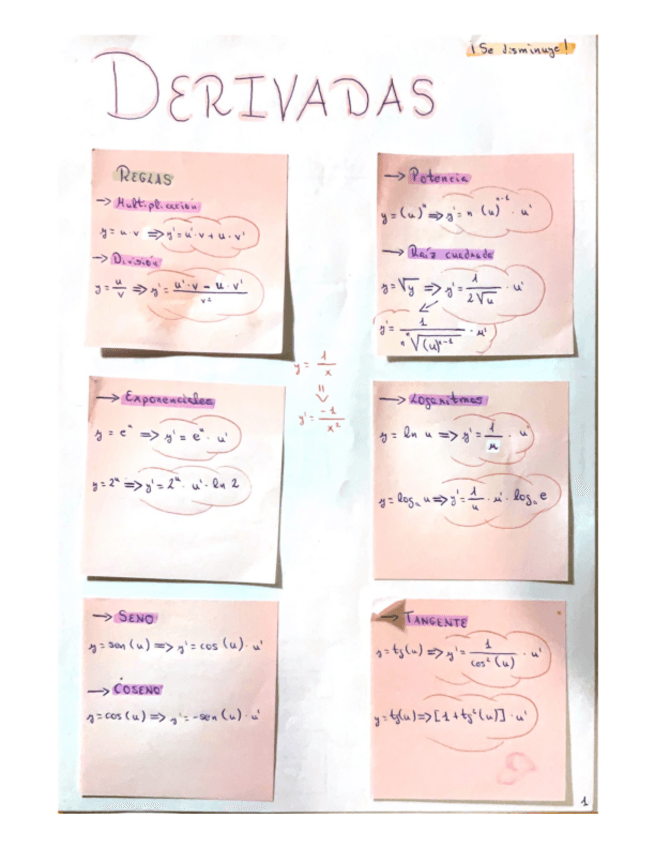 ¡Se disminuye!
DERIVADAS
REGLAS
→ Multiplicación
y = u·v ⇒ y' = u'·v + u·v'
→ División
y = u/v ⇒ y' = (u'·v - u·v')/v²
→ Potencia
y = (u)ⁿ ⇒ y' = n (u)ⁿ⁻¹ · u'
→ Raíz cuadrada
y = √y ⇒ y' = 1/(2√u) · u'
y' = 1/(n ⁿ√(u)ⁿ⁻¹) · u'
y = 1/x
⇓
y' = -1/x²
→ Exponenciales
y = eᵘ ⇒ y' = eᵘ · u'
y = 2ᵘ ⇒ y' = 2ᵘ · u' · ln 2
→ Logaritmos
y = ln u ⇒ y' = 1/u · u'
y = logₐ u ⇒ y' = 1/u · u' · logₐ e
→ SENO
y = sen (u) ⇒ y' = cos (u) · u'
→ COSENO
y = cos (u) ⇒ y' = -sen (u) · u'
→ TANGENTE
y = tg (u) ⇒ y' = 1/cos² (u) · u'
y = tg(u) ⇒ [1 + tg² (u)] · u'
1